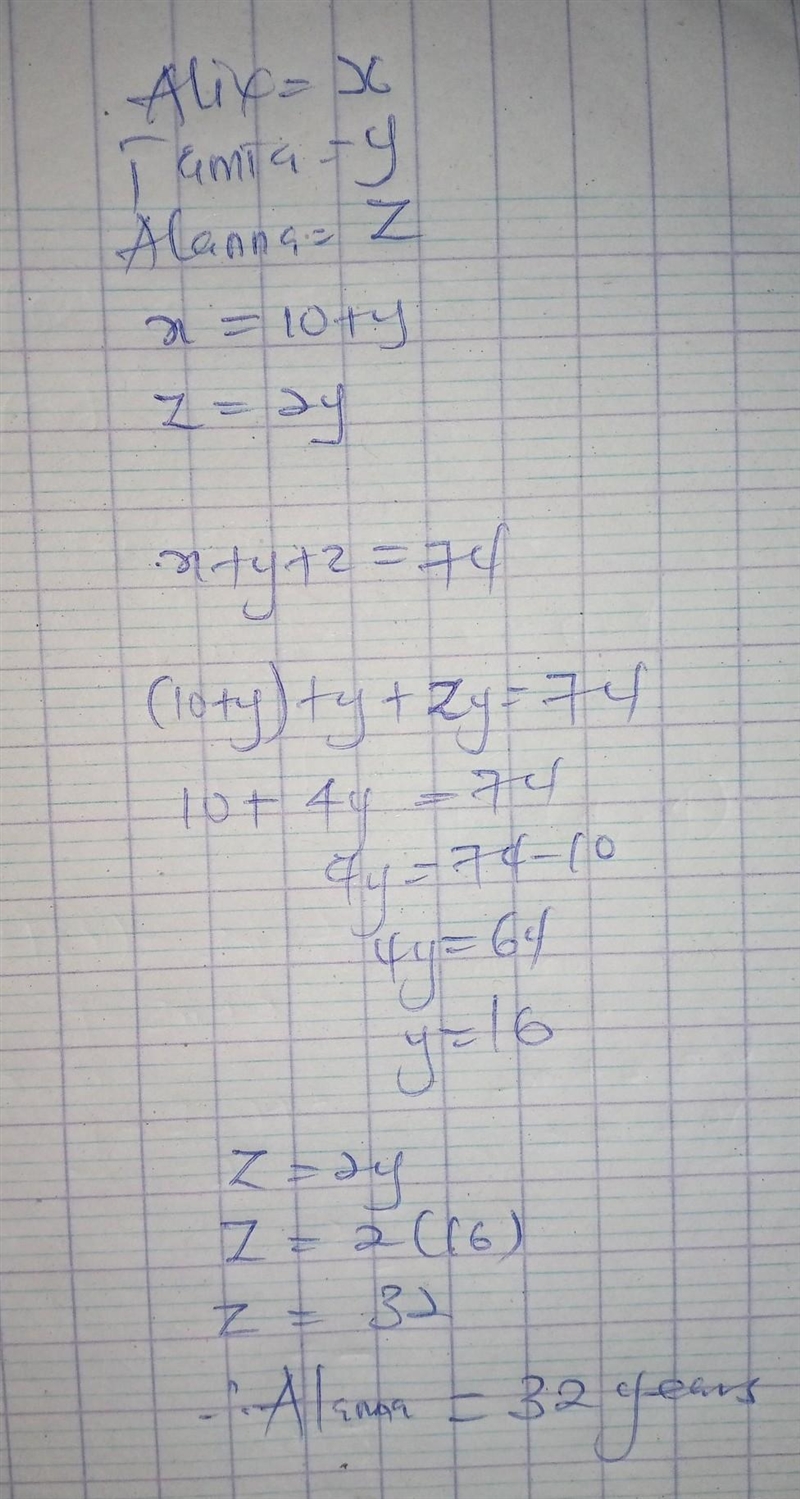 Alix = x
Tamia = y
Alanna = Z
x = 10+y
z = 2y
x+y+z = 74
(10+y)+y+2y=74
10+ 4y = 74
4y = 74-10
4y = 64
y = 16
Z = 2y
Z = 2(16)
z = 32
∴ Alanna = 32 years